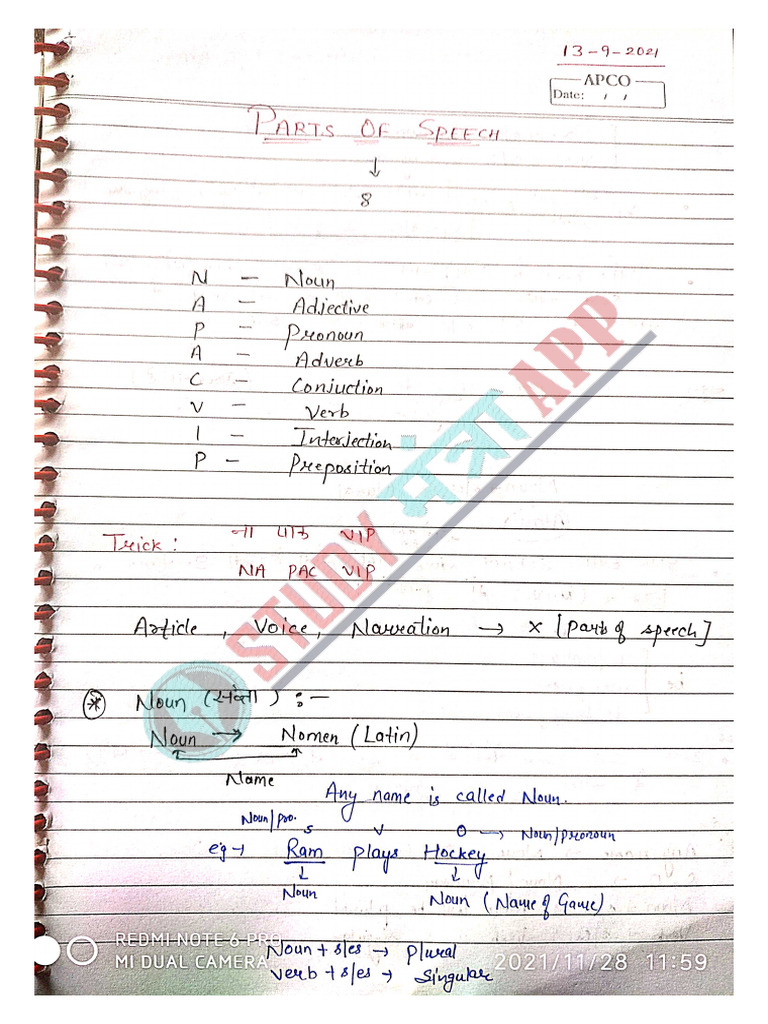 13-9-2021
APCO
Date: / /
PARTS OF SPEECH
↓
8
N - Noun
A - Adjective
P - Pronoun
A - Adverb
C - Conjuction
V - Verb
I - Interjection
P - Preposition
Trick: ना पाक VIP
NA PAC VIP
Article, Voice, Narration → × [Part of speech]
* Noun (संज्ञा) :-
Noun → Nomen (Latin)
Name
Any name is called Noun.
Noun/pro. S V O → Noun/pronoun
eg → Ram plays Hockey
↓ ↓
Noun Noun (Name of Game)
Noun + s/es → Plural
Verb + s/es → Singular
STUDY मंत्रा APP
REDMI NOTE 6 PRO
MI DUAL CAMERA
2021/11/28 11:59